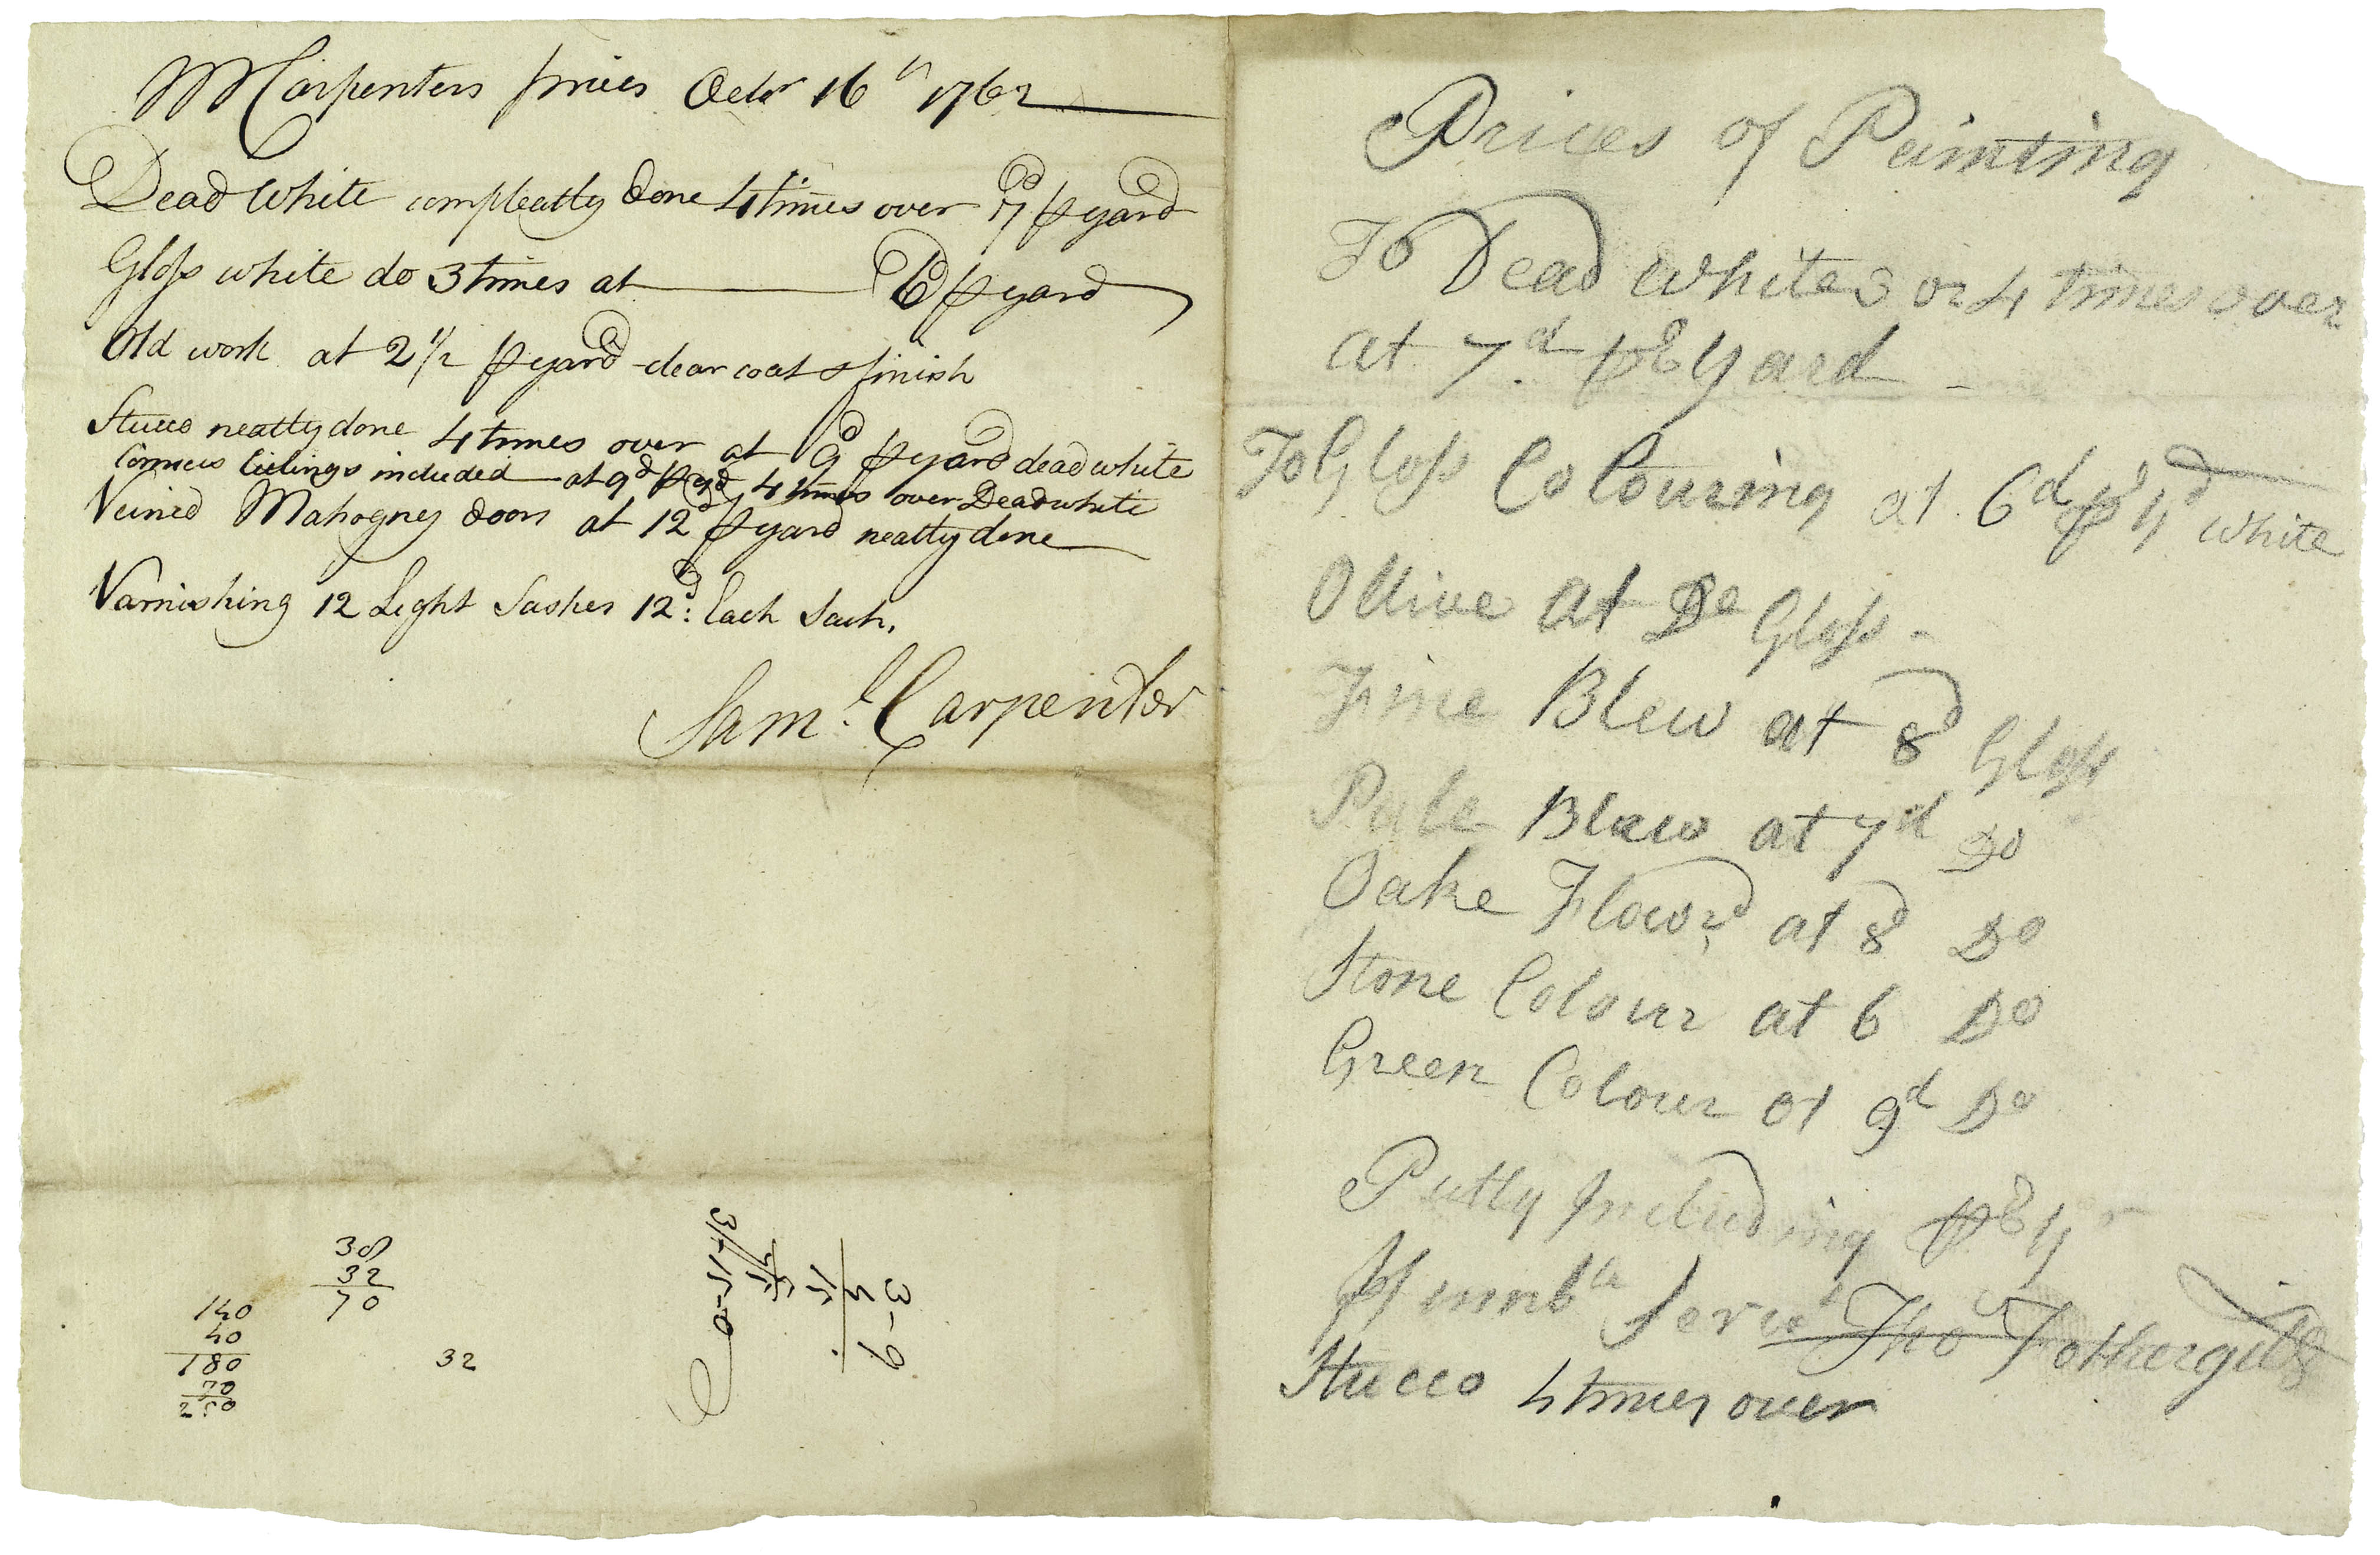 Mr Carpenters prices Octr 16th 1762
Dead White compleatly done 4 times over 7d p yard
Gloss white do 3 times at 6d p yard
Old work at 2 1/2 p yard clear coat & finish
Stucco neatly done 4 times over at 9d p yard dead white
Cornices Ceilings included at 9d p yd 4 times over Dead white
Veined Mahogney doors at 12d p yard neatly done
Varnishing 12 Light Sashes 12d: Each Sash.
Saml. Carpenter
38
32
70
140
40
180
70
250
32
3-9
Prices of Painting
To Dead White 3 or 4 times over
at 7d pr Yard
To Gloss Colouring at 6d pr Yd white
Ollive at Do Gloss
Fine Blew at 8d Gloss
Pale Blew at 7d Do
Oake Flowrd at 8d Do
Stone Colour at 6 Do
Green Colour at 9d Do
Putty Including pr Y
Humble Servt Thos Fothergill
Stucco 4 times over